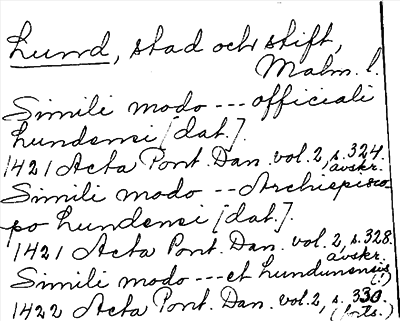 Lund, stad och stift,
Malm. l.
Simili modo --- officiali
Lundensi [dat.].
1421 Acta Pont. Dan. vol. 2, s. 324.
avskr.
Simili modo --- Archiepisco
po Lundensi [dat.].
1421 Acta Pont. Dan. vol. 2, s. 328.
avskr.
Simili modo --- et Lundunensis
(!)
1422 Acta Pont. Dan. vol. 2, s. 330.
(forts.)